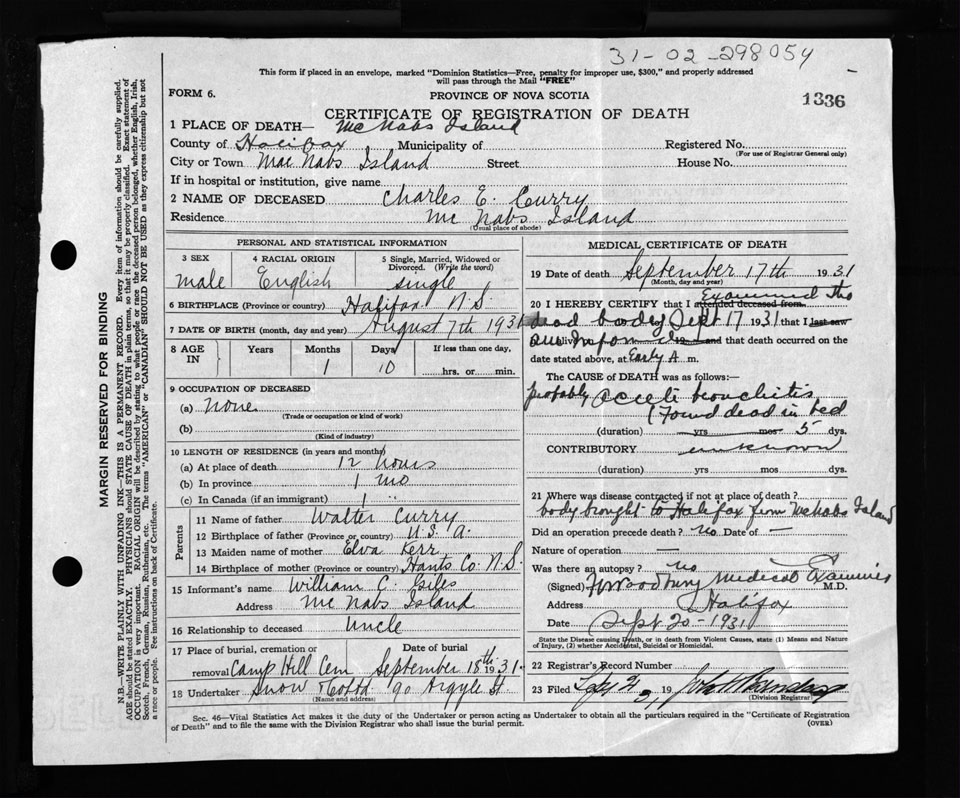 31-02-298054
This form if placed in an envelope, marked "Dominion Statistics—Free, penalty for improper use, $300," and properly addressed
will pass through the Mail "FREE"
FORM 6.
PROVINCE OF NOVA SCOTIA
1336
CERTIFICATE OF REGISTRATION OF DEATH
1 PLACE OF DEATH— McNabs Island
County of Halifax Municipality of Registered No.
(For use of Registrar General only)
City or Town MacNabs Island Street House No.
If in hospital or institution, give name
2 NAME OF DECEASED Charles E. Curry
Residence McNabs Island
(Usual place of abode)
PERSONAL AND STATISTICAL INFORMATION
3 SEX
male
4 RACIAL ORIGIN
English
5 Single, Married, Widowed or
Divorced. (Write the word)
single
6 BIRTHPLACE (Province or country) Halifax N.S.
7 DATE OF BIRTH (month, day and year) August 7th 1931
8 AGE IN
Years
Months
1
Days
10
If less than one day,
hrs. or min.
9 OCCUPATION OF DECEASED
(a) none
(Trade or occupation or kind of work)
(b)
(Kind of industry)
10 LENGTH OF RESIDENCE (in years and months)
(a) At place of death 12 hours
(b) In province 1 mo
(c) In Canada (if an immigrant) 1 "
Parents
11 Name of father Walter Curry
12 Birthplace of father (Province or country) U.S.A.
13 Maiden name of mother Elva Kerr
14 Birthplace of mother (Province or country) Hants Co. N.S.
15 Informant's name William C. Giles
Address McNabs Island
16 Relationship to deceased Uncle
17 Place of burial, cremation or Date of burial
removal Camp Hill Cem September 18th 1931
18 Undertaker Snow 90 Argyle St.
(Name and address)
MEDICAL CERTIFICATE OF DEATH
19 Date of death September 17th 1931
(Month, day and year)
20 I HEREBY CERTIFY that I attended deceased from Examined the
dead body Sept 17 1931 that I last saw
alive on 19 and that death occurred on the
date stated above, at Early A m.
The CAUSE OF DEATH was as follows:—
probably acute bronchitis
(Found dead in bed
(duration) yrs mos 5 dys.
CONTRIBUTORY unknown
(duration) yrs mos dys.
21 Where was disease contracted if not at place of death?
body brought to Halifax from McNabs Island
Did an operation precede death? no Date of —
Nature of operation —
Was there an autopsy? no
(Signed) Woodbury Medical Examiner M.D.
Address Halifax
Date Sept 20-1931
State the Disease causing Death, or in death from Violent Causes, state (1) Means and Nature
of Injury, (2) whether Accidental, Suicidal or Homicidal.
22 Registrar's Record Number
23 Filed 21 19
(Division Registrar)
Sec. 46—Vital Statistics Act makes it the duty of the Undertaker or person acting as Undertaker to obtain all the particulars required in the "Certificate of Registration
of Death" and to file the same with the Division Registrar who shall issue the burial permit.
(OVER)
MARGIN RESERVED FOR BINDING
N.B.—WRITE PLAINLY WITH UNFADING INK—THIS IS A PERMANENT RECORD. Every item of information should be carefully supplied.
AGE should be stated EXACTLY. PHYSICIANS should STATE CAUSE OF DEATH in plain terms, so that it may be properly classified. Exact statement of
OCCUPATION is very important. RACIAL ORIGIN will be described by stating to what people or race the deceased person belonged, whether English, Irish,
Scotch, French, German, Russian, Ruthenian, etc. The terms "AMERICAN" or "CANADIAN" SHOULD NOT BE USED as they express citizenship but not
a race or people. See instructions on back of Certificate.